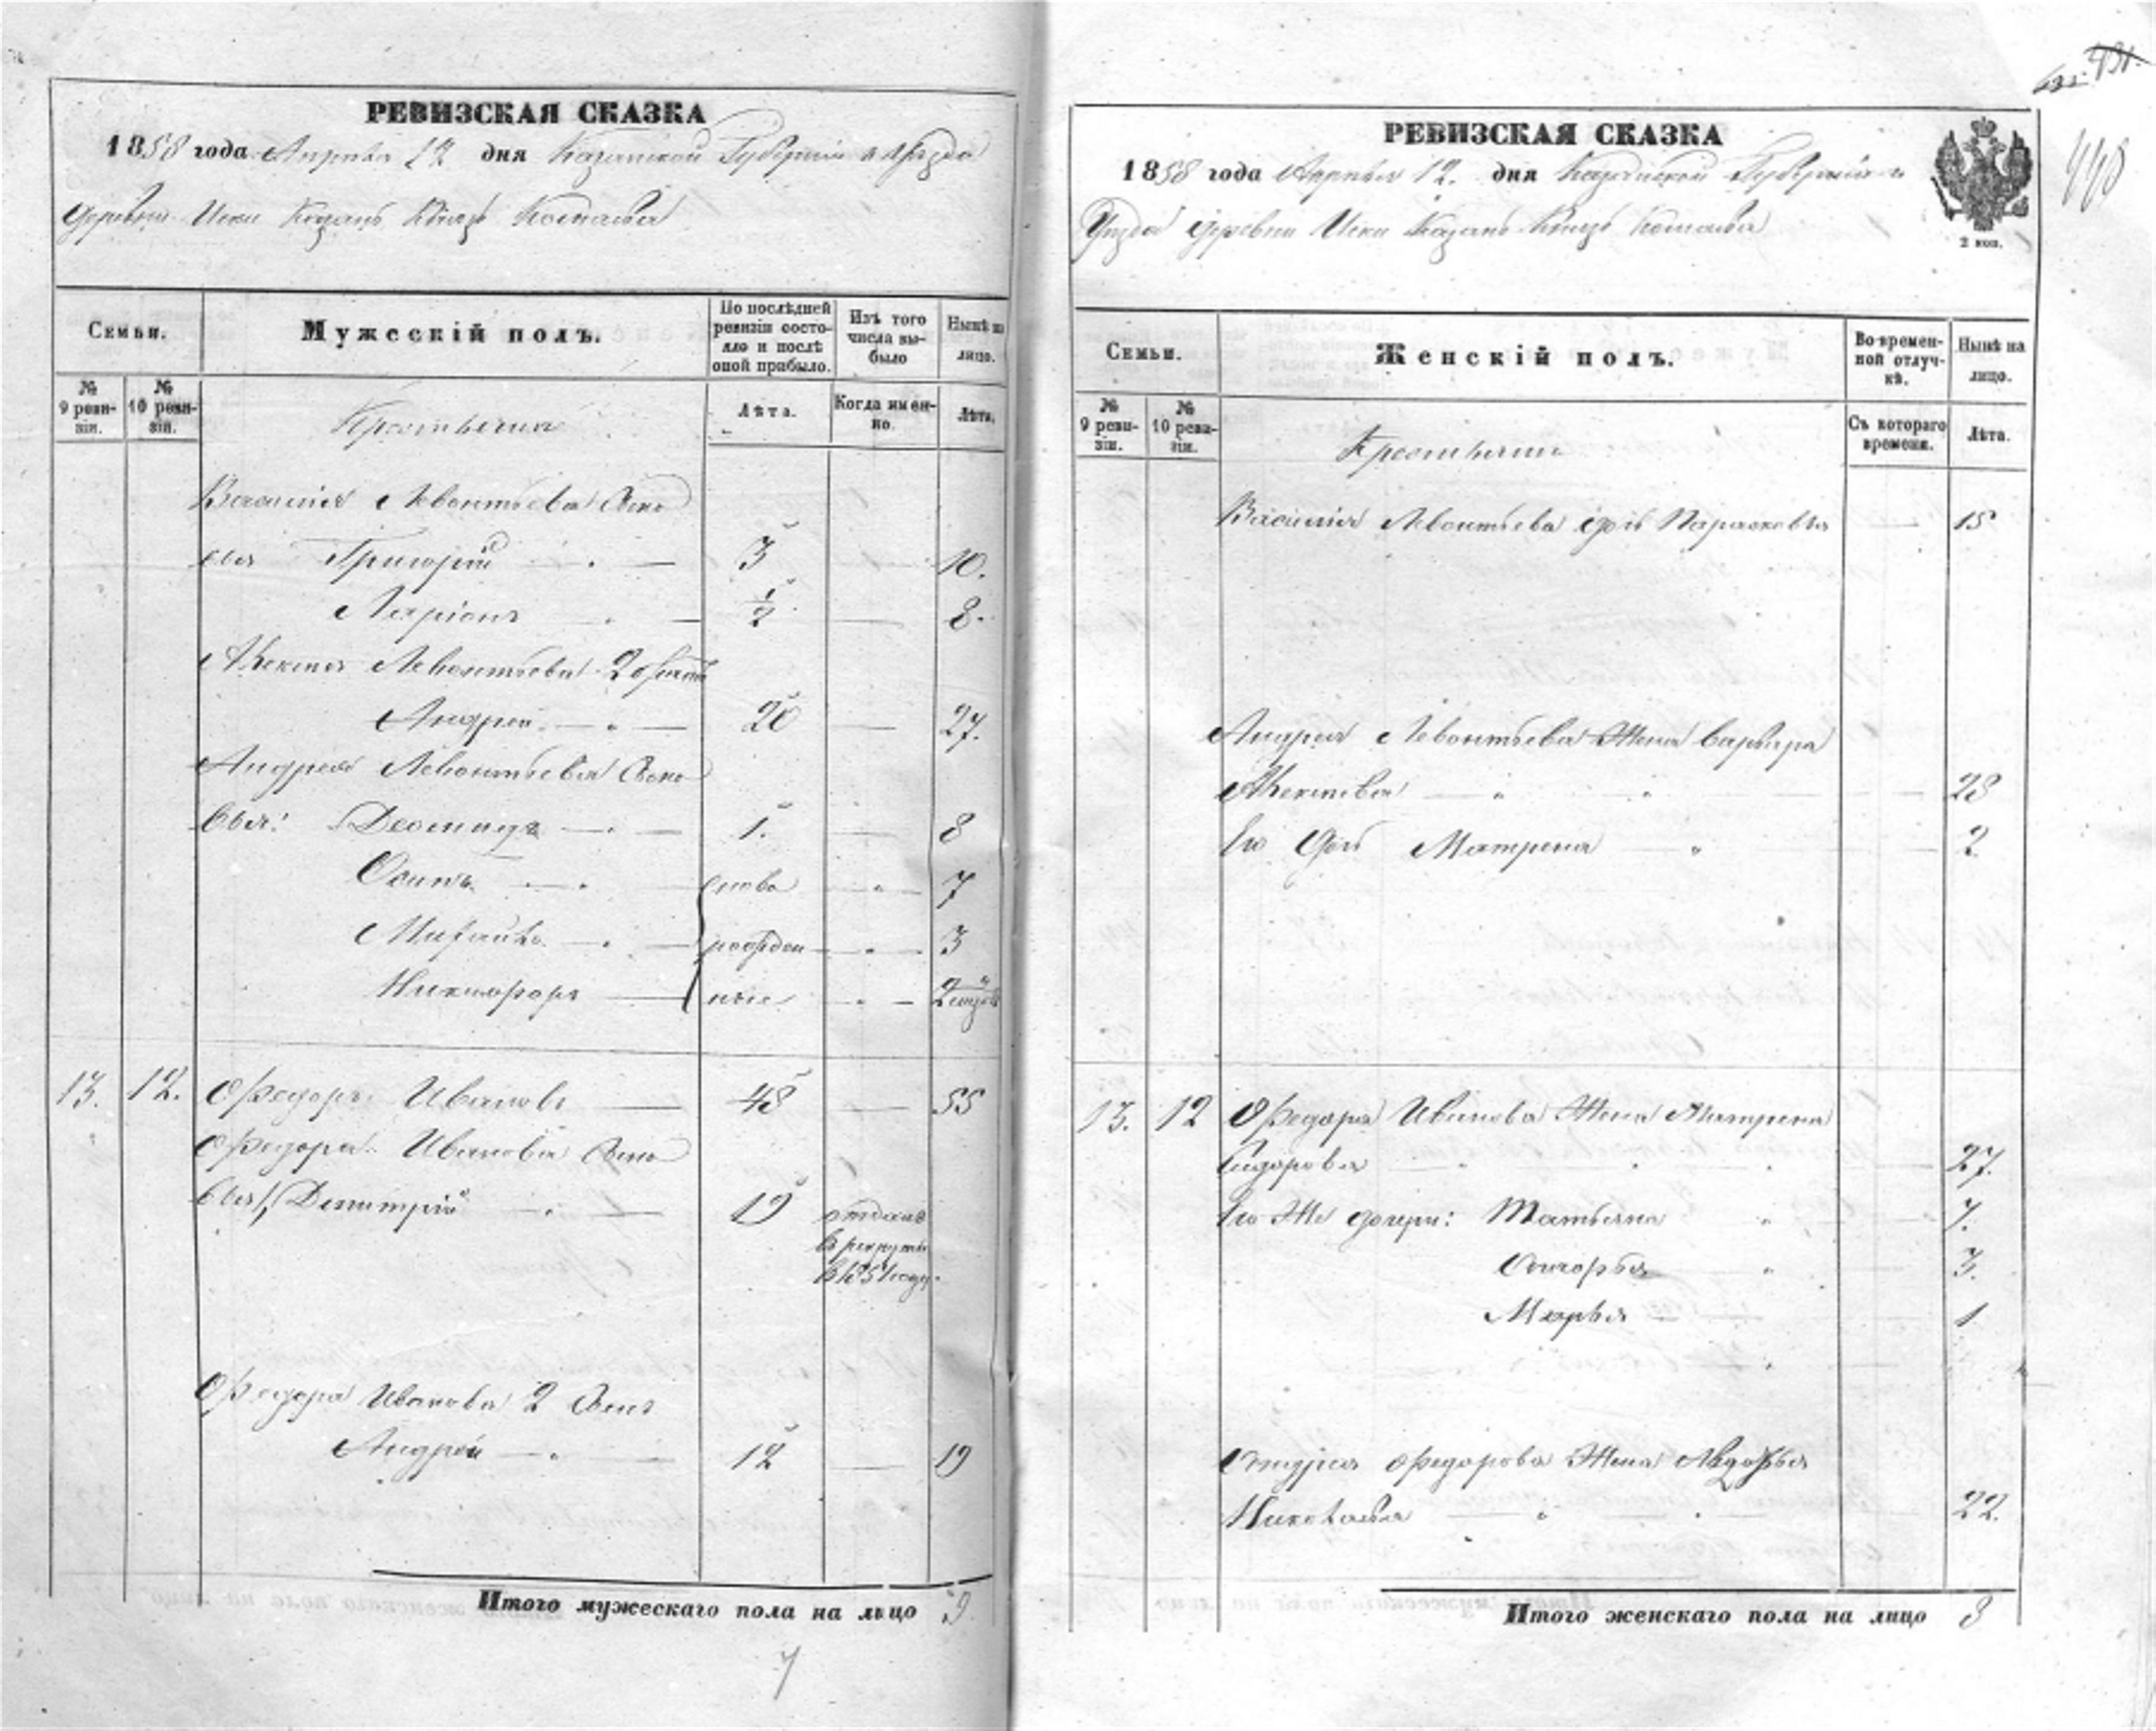 РЕВИЗСКАЯ СКАЗКА
1858 года Апреля 12 дня Казанской Губернии и Уезда
деревни Иски Казань Князь Комаева
Семьи.
Мужескій полъ.
По послѣдней ревизіи состояло и послѣ оной прибыло.
Изъ того числа выбыло
Нынѣ на лицо.
№ 9 ревизіи.
№ 10 ревизіи.
Крестьяня
Лѣта.
Когда именно.
Лѣта.
Василия Левонтьева Сыно
вья Григорій 3 10.
Ларіонъ 1/2 8.
Левонтьева 2 братъ
Андрей 20 27.
Андрея Левонтьева Сыно
вья: 1. 8
Осипъ снова 7
Михайло рожден 3
Никифоръ ные
13. 12. Федоръ Ивановъ 48 55
Федора Иванова Сыно
вья: Димитрій 19 отданъ
в рекруты
в 1854 году.
Федора Иванова 2 Сынъ
Андрей 12 19
Итого мужескаго пола на лицо 9
7
431.
448
РЕВИЗСКАЯ СКАЗКА
1858 года Апреля 12. дня Казанской Губерніи и
Уезда деревни Иски Казань Князь Комаева
2 коп.
Семьи.
Женскій полъ.
Во временной отлучкѣ.
Нынѣ на лицо.
№ 9 ревизіи.
№ 10 ревизіи.
Крестьяни
Съ котораго времени.
Лѣта.
Василия Левонтьева дочь Парасковья 15
Андрея Левонтьева Жена Варвара
28
Его Дочь Матрена 2
13. 12 Федора Иванова Жена Матрена
Сидорова 27.
Его Же дочери: Татьяна 7.
3.
Марья 1
Андрея Федорова Жена Авдотья
Николаева 22.
Итого женскаго пола на лицо 8